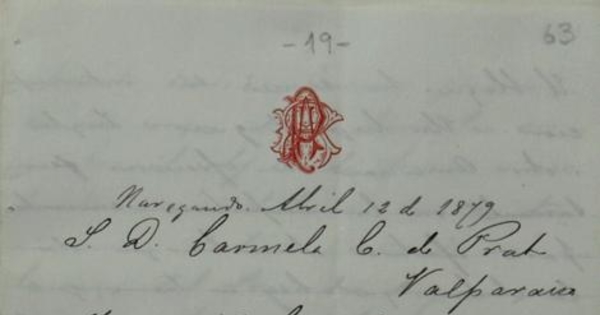 -19-
63
Navegando. Abril 12 de 1879
S. D. Carmela C. de Prat
Valparaiso